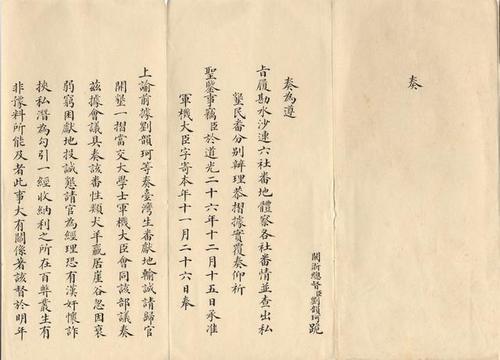 奏
閩浙總督臣劉韻珂跪
奏為遵
旨履勘水沙連六社番地體察各社番情並查出私
墾民番分別辦理恭摺據實覆奏仰祈
聖鑒事竊臣於道光二十六年十二月十五日承准
軍機大臣字寄本年十一月二十六日奉
上諭前據劉韻珂等奏臺灣生番獻地輸誠請歸官
開墾一摺當交大學士軍機大臣會同該部議奏
茲據會議具奏該番性類犬羊居崖谷忽因衰
弱窮困獻地投誠懇請官為經理恐有漢奸懷詐
挾私潛為勾引一經收納利之所在百弊叢生有
非豫料所能及者此事大有關係著該督於明年